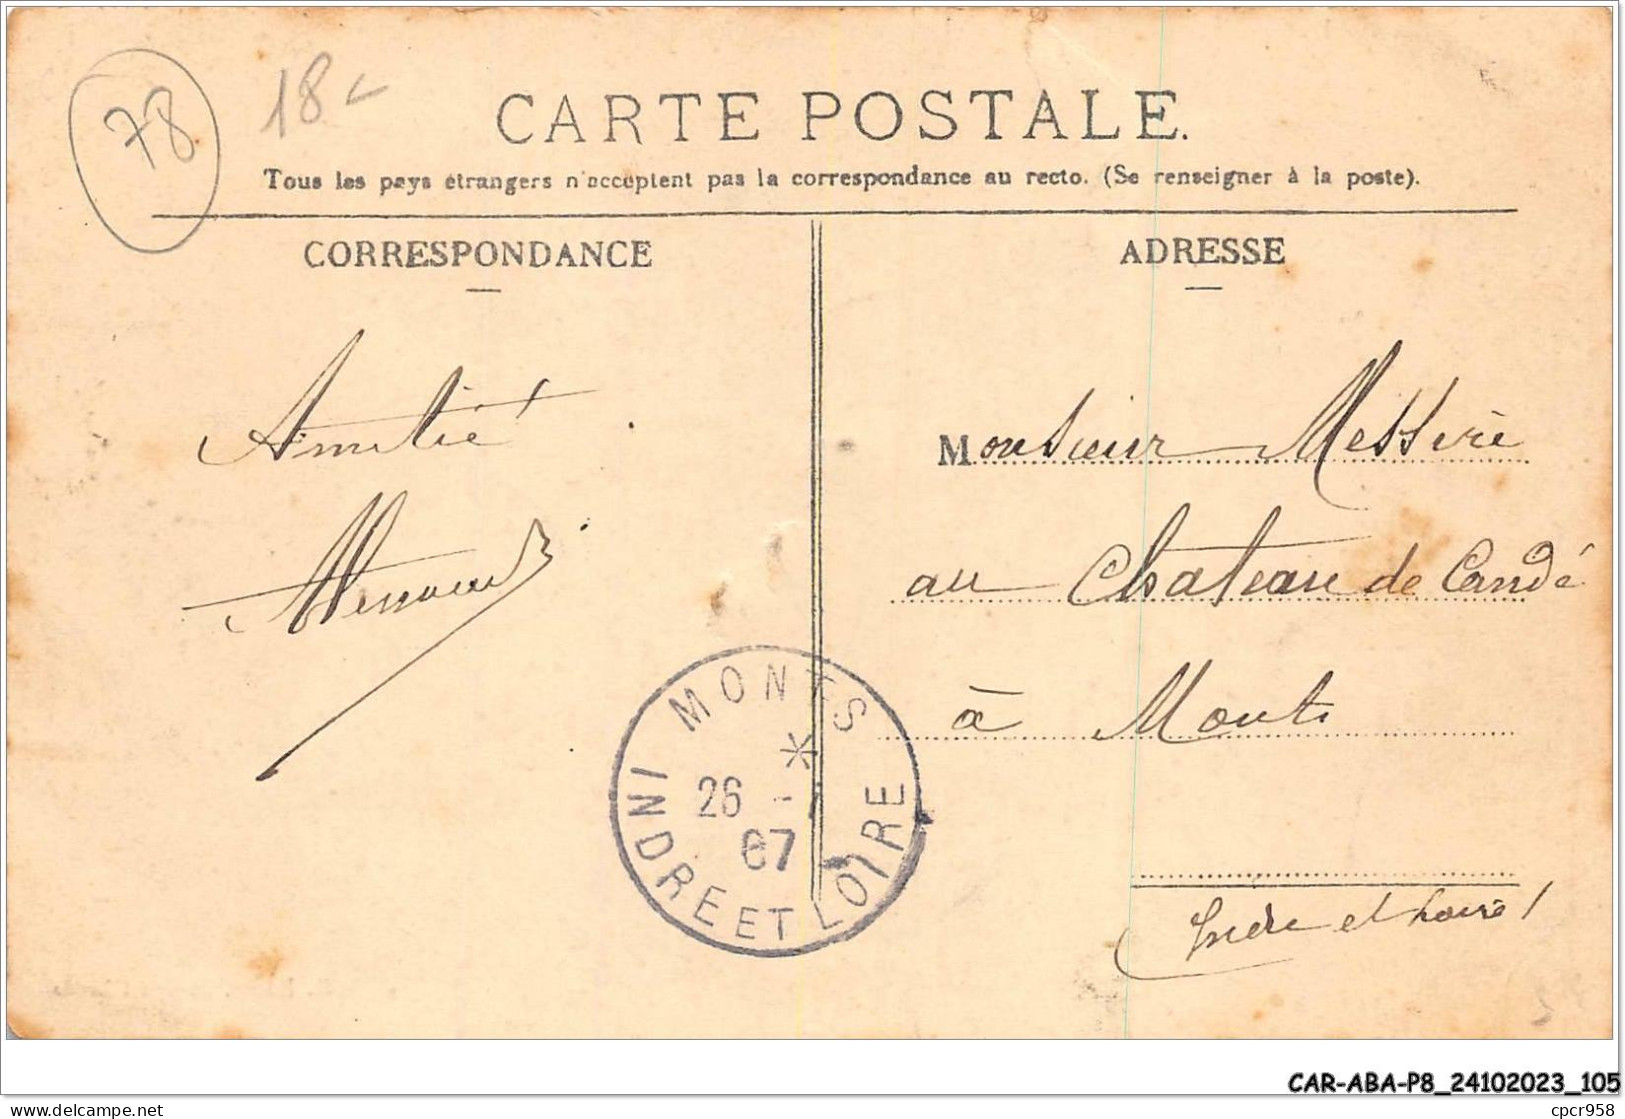 78
18
CARTE POSTALE.
Tous les pays étrangers n'acceptent pas la correspondance au recto. (Se renseigner à la poste).
CORRESPONDANCE
ADRESSE
Amitié
Monsieur Messire
au Chateau de Candé
à Monts
Indre et Loire
MONTS
26 -7
07
INDRE ET LOIRE
CAR-ABA-P8_24102023_105
cpcr958